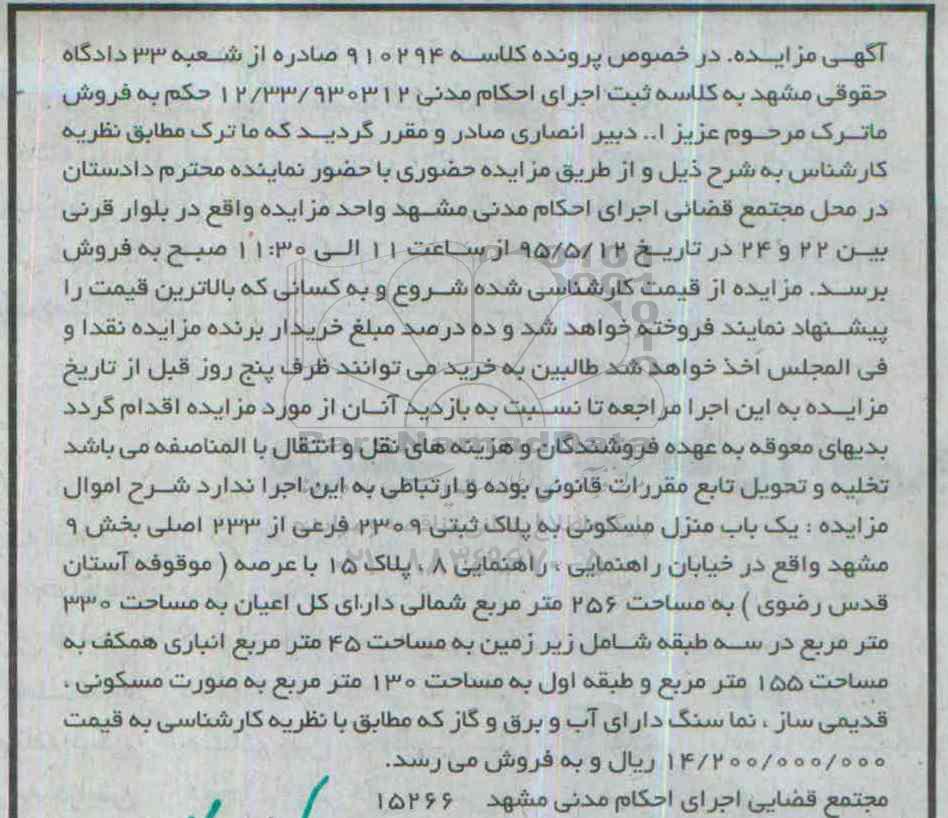 آگهی مزایده. در خصوص پرونده کلاسه ۹۱۰۲۹۴ صادره از شعبه ۳۳ دادگاه
حقوقی مشهد به کلاسه ثبت اجرای احکام مدنی ۱۲/۳۳/۹۳۰۳۱۲ حکم به فروش
ماترک مرحوم عزیز ا.. دبیر انصاری صادر و مقرر گردید که ما ترک مطابق نظریه
کارشناس به شرح ذیل و از طریق مزایده حضوری با حضور نماینده محترم دادستان
در محل مجتمع قضائی اجرای احکام مدنی مشهد واحد مزایده واقع در بلوار قرنی
بین ۲۲ و ۲۴ در تاریخ ۹۵/۵/۱۲ از ساعت ۱۱ الی ۱۱:۳۰ صبح به فروش
برسد. مزایده از قیمت کارشناسی شده شروع و به کسانی که بالاترین قیمت را
پیشنهاد نمایند فروخته خواهد شد و ده درصد مبلغ خریدار برنده مزایده نقدا و
فی المجلس اخذ خواهد شد طالبین به خرید می توانند ظرف پنج روز قبل از تاریخ
مزایده به این اجرا مراجعه تا نسبت به بازدید آنان از مورد مزایده اقدام گردد
بدیهای معوقه به عهده فروشندگان و هزینه های نقل و انتقال با المناصفه می باشد
تخلیه و تحویل تابع مقررات قانونی بوده و ارتباطی به این اجرا ندارد شرح اموال
مزایده : یک باب منزل مسکونی به پلاک ثبتی ۲۳۰۹ فرعی از ۲۳۳ اصلی بخش ۹
مشهد واقع در خیابان راهنمایی ، راهنمایی ۸ ، پلاک ۱۵ با عرصه ( موقوفه آستان
قدس رضوی ) به مساحت ۲۵۶ متر مربع شمالی دارای کل اعیان به مساحت ۳۳۰
متر مربع در سه طبقه شامل زیر زمین به مساحت ۴۵ متر مربع انباری همکف به
مساحت ۱۵۵ متر مربع و طبقه اول به مساحت ۱۳۰ متر مربع به صورت مسکونی ،
قدیمی ساز ، نما سنگ دارای آب و برق و گاز که مطابق با نظریه کارشناسی به قیمت
۱۴/۲۰۰/۰۰۰/۰۰۰ ریال و به فروش می رسد.
مجتمع قضایی اجرای احکام مدنی مشهد ۱۵۲۶۶